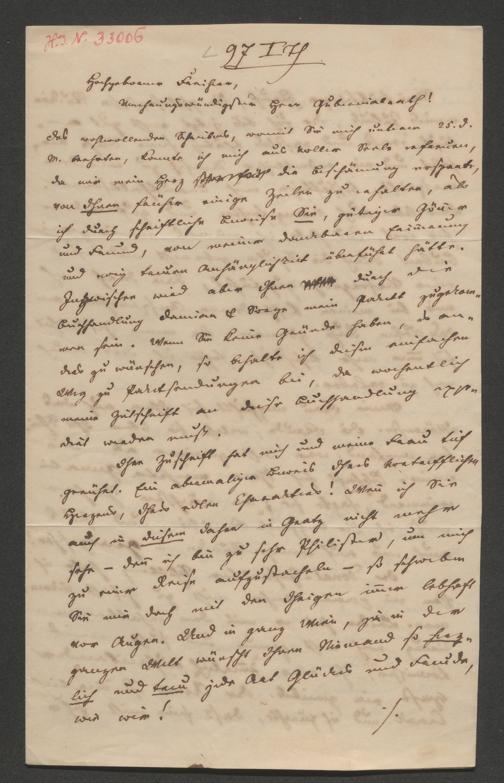 H.I.N. 33006
97 I 71
Hochgeborner Freiherr,
Verehrungswürdigster Herr Gubernialrath!
Des wohlwollenden Schreibens, womit Sie mich unterm 25. d.
M. beehrten, konnte ich mich aus voller Seele erfreuen,
da mir mein Herz die Beschämung ersparte,
von Ihnen früher einige Zeilen zu erhalten, als
ich durch schriftliche Beweise Sie, gütiger Gönner
und Freund, von meiner dankbaren Erinnerung
und ewig treuen Anhänglichkeit überführt hätte.
Inzwischen wird aber Ihnen durch die
Buchhandlung Damian & Sorge mein Paket zugekom-
men sein. Wenn Sie keine Gründe haben, es an-
ders zu wünschen, so behalte ich diesen einfachen
Weg zu Paketsendungen bei, da wochentlich
meine Zeitschrift an diese Buchhandlung expe-
dirt werden muß.
Ihre Zuschrift hat mich und meine Frau tief
gerührt. Ein abermaliger Beweis Ihres vortrefflichen
Herzens, Ihres edlen Charakters! Wenn ich Sie
auch in diesem Jahre in Gratz nicht mehr
sehe – denn ich bin zu sehr Philister, um mich
zu einer Reise aufzustacheln – so schweben
Sie mir doch mit den Ihrigen immer lebhaft
vor Augen. Und in ganz Wien, ja in der
ganzen Welt wünscht Ihnen Niemand so herz-
lich und treu jede Art Glückes und Freude,
wie wir!
./.